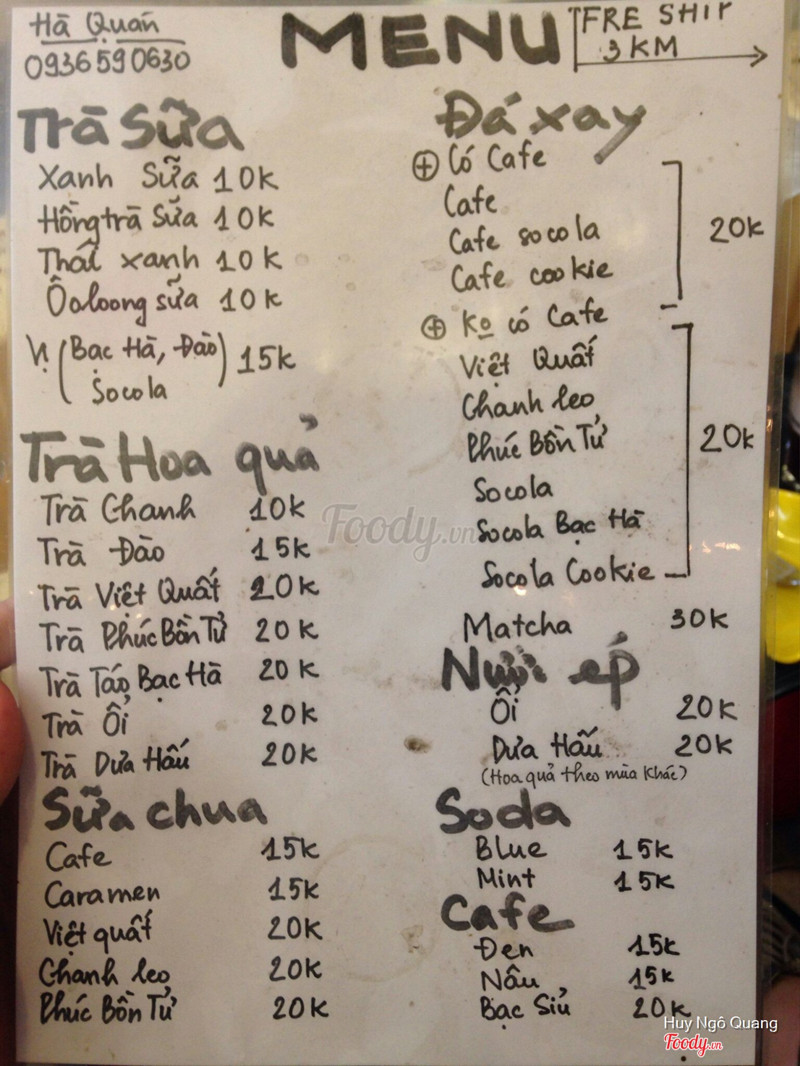 Hà Quán
0936590630
MENU
FRE SHIP
3KM
Trà Sữa
Xanh Sữa 10K
Hồng trà Sữa 10K
Thái xanh 10K
Ôoloong sữa 10K
Vị (Bạc Hà, Đào) 15K
Socola
Trà Hoa quả
Trà Chanh 10K
Trà Đào 15K
Trà Việt Quất 20K
Trà Phúc Bồn Tử 20K
Trà Táo Bạc Hà 20K
Trà Ổi 20K
Trà Dưa Hấu 20K
Sữa chua
Cafe 15K
Caramen 15K
Việt quất 20K
Chanh leo 20K
Phúc Bồn Tử 20K
Đá xay
+ Có Cafe
Cafe
Cafe socola
Cafe cookie
20K
+ Ko có Cafe
Việt Quất
Chanh leo
Phúc Bồn Tử
Socola
Socola Bạc Hà
Socola Cookie
20K
Matcha 30K
Nước ép
Ổi 20K
Dưa Hấu 20K
(Hoa quả theo mùa khác)
Soda
Blue 15K
Mint 15K
Cafe
Đen 15K
Nâu 15K
Bạc Sỉu 20K
Foody.vn
Huy Ngô Quang
Foody.vn